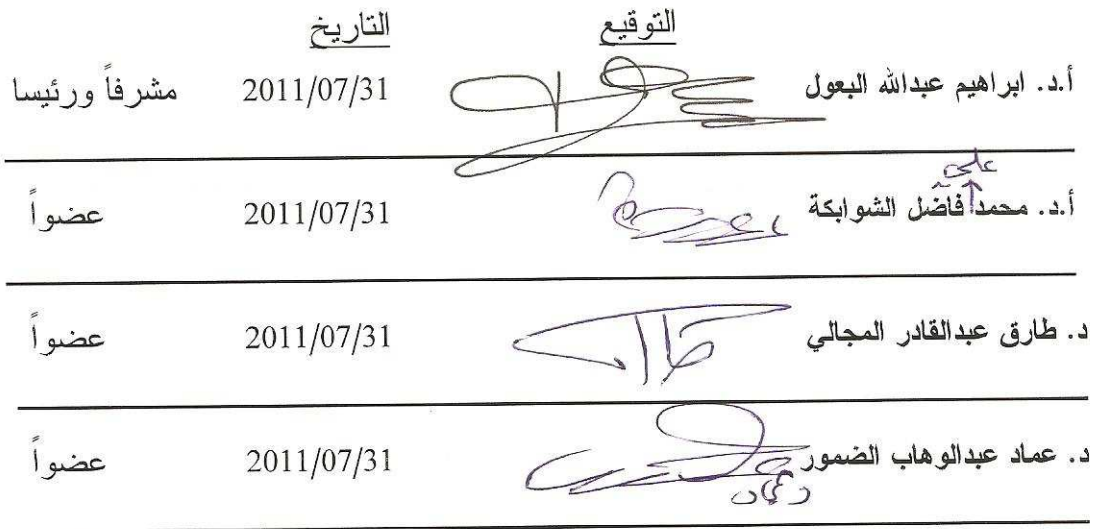 التوقيع التاريخ
أ.د. ابراهيم عبدالله البعول 2011/07/31 مشرفاً ورئيسا
على
أ.د. محمد فاضل الشوابكة 2011/07/31 عضواً
د. طارق عبدالقادر المجالي 2011/07/31 عضواً
د. عماد عبدالوهاب الضمور 2011/07/31 عضواً